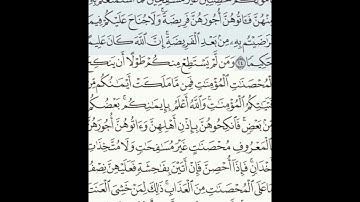 بأموالكم محصنين غير مسافحين فما استمتعتم به
منهن فـاتوهن أجورهن فريضة ولا جناح عليكم فيما
تراضيتم به من بعد الفريضة إن الله كان عليما
حكيما ٢٤ ومن لم يستطع منكم طولا أن ينكح
المحصنت المؤمنت فمن ما ملكت أيمنكم من
فتيتكم المؤمنت والله أعلم بإيمنكم بعضكم
من بعض فانكحوهن بإذن أهلهن وءاتوهن أجورهن
بالمعروف محصنت غير مسفحت ولا متخذت
أخدان فإذا أحصن فإن أتين بفحشة فعليهن نصف
ما على المحصنت من العذاب ذلك لمن خشي العنت